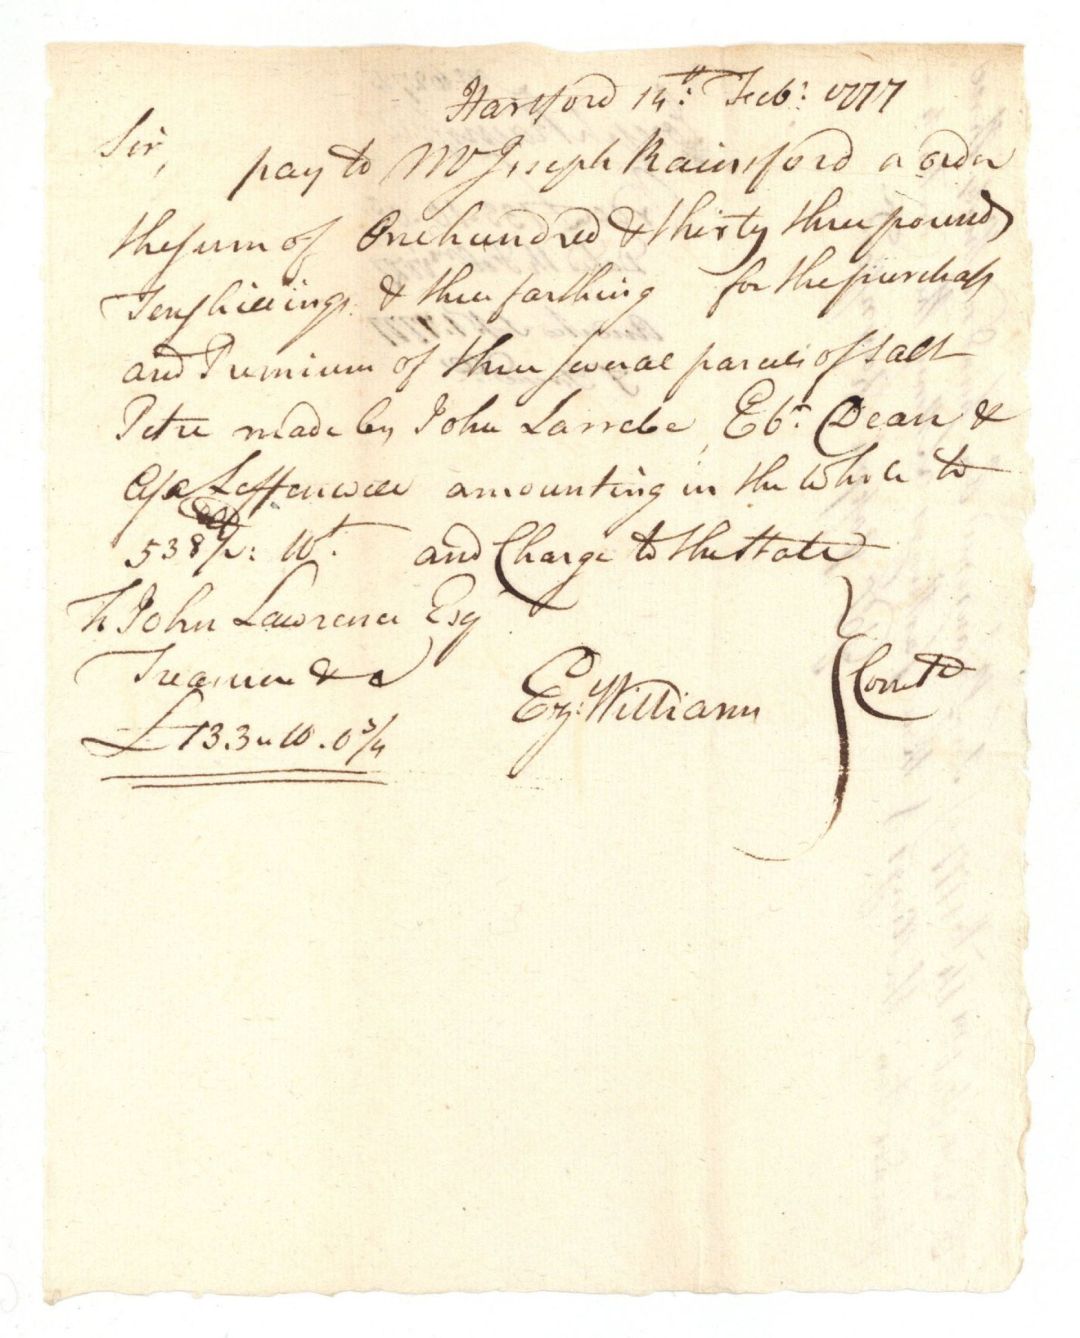 Hartford 14th: Feb: 1777
Sir,
pay to Mr Joseph Rainsford or order
the sum of One hundred & thirty three pounds
Ten shillings & three farthing for the purchass
and Premium of three several parcels of salt
Petre made by John Larrebe, Ebr. Dean &
Leffenwell amounting in the whole to
538 1/2: Wt. and Charge to the State
To John Lawrence Esqr
Treasurer & a
Ez: Williams } Comtte
£133 " 10 . 0 3/4